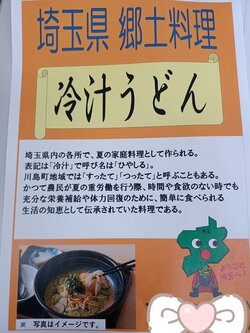 埼玉県 郷土料理
冷汁うどん
埼玉県内の各所で、夏の家庭料理として作られる。
表記は「冷汁」で呼び名は「ひやしる」。
川島町地域では「すったて」「つったて」と呼ぶこともある。
かつて農民が夏の重労働を行う際、時間や食欲のない時でも
充分な栄養補給や体力回復のために、簡単に食べられる
生活の知恵として伝承されていた料理である。
ようこそ
埼玉へ
※ 写真はイメージです。